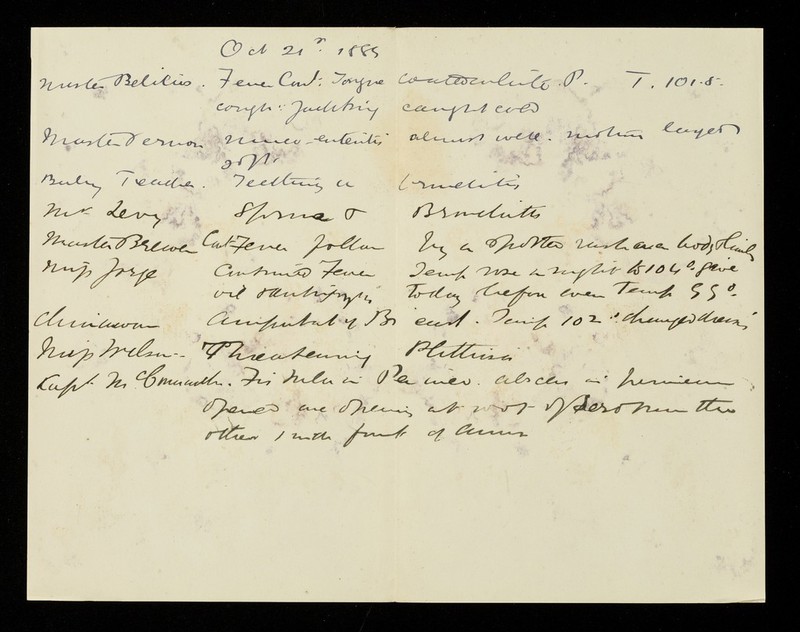 Oct 21st. 1889
Master Belilios. Fever Cont: Tongue coated white. P. T. 101.5.
cough: caught cold
Master Vernon muco-enteritis almost well. motion
soft
Baby Teething Bronchitis
Mr Levy Sprue & Bronchitis
Master Brewer Cont Fever follow by a spotted rash over body & limbs
Miss Jorge Continued Fever Temp rose in night to 104°. give
today before even Temp 99°.
Chinawoman Amputat of Breast. Temp 102° changed
Miss Wilson - Threatening Phthisis
Capt. Fistula in Perineo. abscess in perineum
opened one opening at root of Scrotum the
other 1 inch front of anus